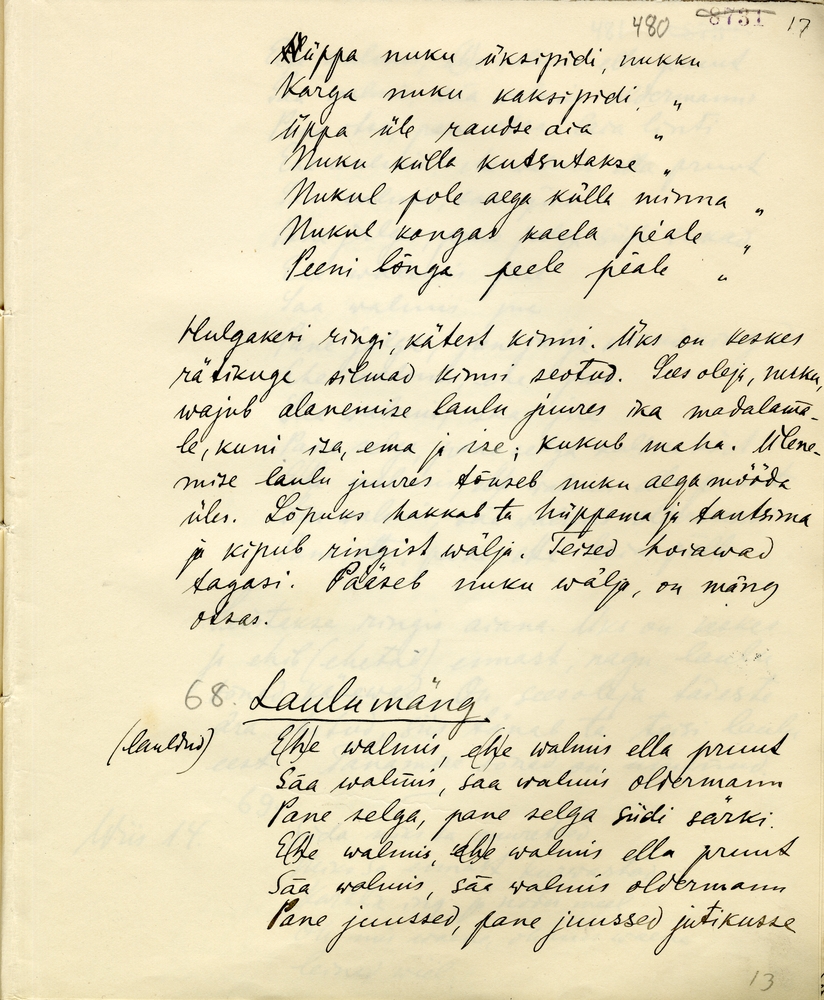 480 8731 17
Hüppa nuku üksipidi, nukku
Karga nuku kaksipidi, "
Üppa üle raudse aia "
Nuku külla kutsutakse "
Nukul pole aega külla minna "
Nukul kangas kaela péale "
Peeni lõnga peele péale "
Hulgakesi ringi, kätest kinni. Üks on keskes
rätikuge silmad kinni seotud. Seesoleja, nuku,
wajub alanemise laulu juures ika madalama-
le, kuni isa, ema ja ise; kukub maha. Ülene-
mise laulu juures tõuseb nuku aega mööda
üles. Lõpuks hakkab ta hüppama ja tantsima
ja kipub ringist wälja. Teised hoiawad
tagasi. Pääseb nuku wälja, on mäng
otsas.
68. Laulumäng.
(lauldud) E(h)e walmis, e(h)e walmis ella pruut
Sãa walmis, saa walmis oldermann
Pane selga, pane selga siidi särki.
E(h)e walmis, e(h)e walmis ella pruut
Sãa walmis, sãa walmis oldermann
Pane juussed, pane juussed jutikusse
13